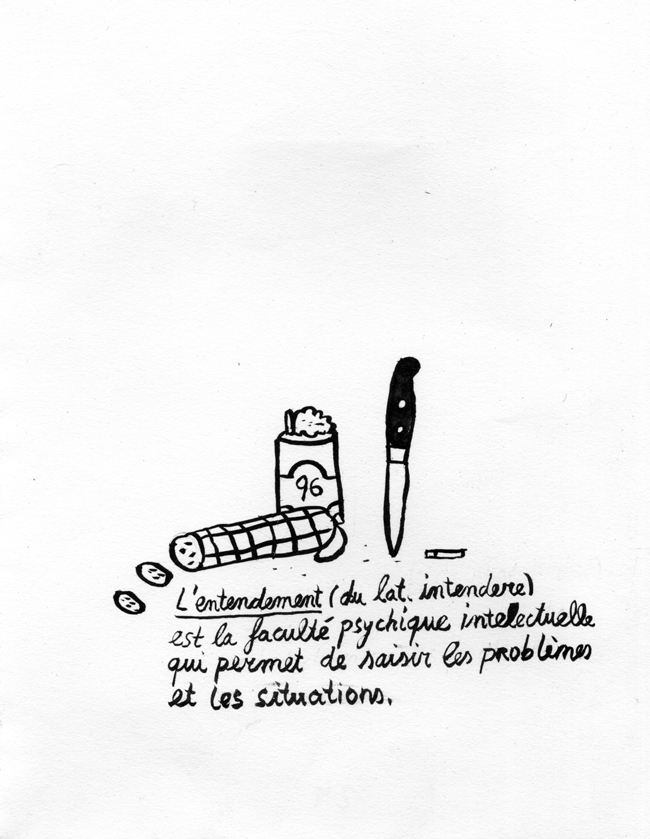 96
L'entendement (du lat. intendere)
est la faculté psychique intelectuelle
qui permet de saisir les problèmes
et les situations.